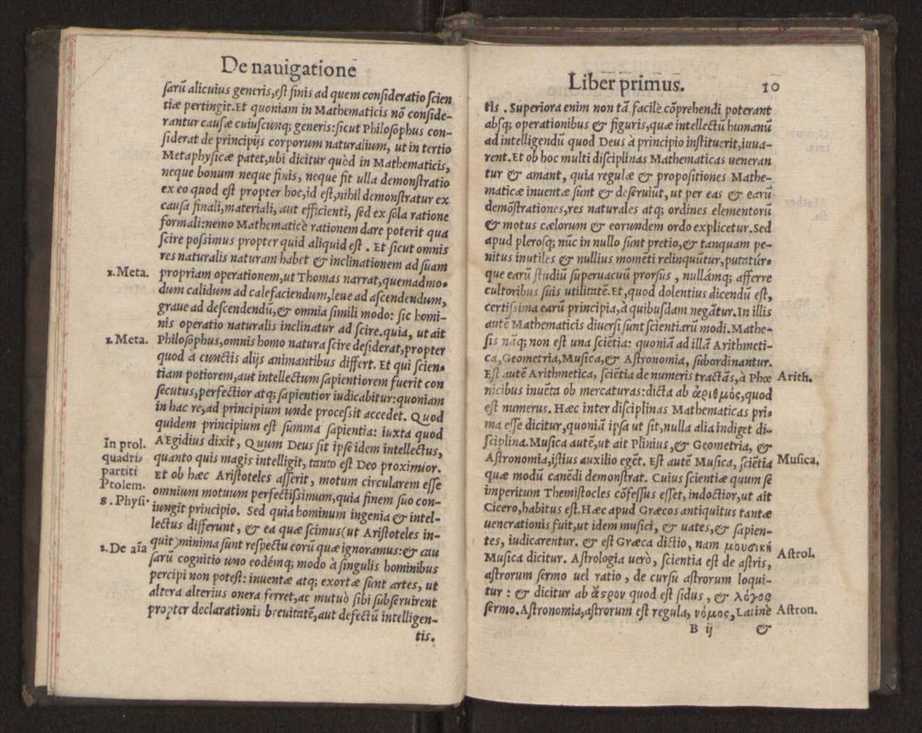 De nauigatione
sarũ alicuius generis, est finis ad quem consideratio scien
tiæ pertingit. Et quoniam in Mathematicis nõ conside-
rantur causæ cuiuscunq; generis: sicut Philosophus con-
siderat de principijs corporum naturalium, ut in tertio
Metaphysicæ patet, ubi dicitur quòd in Mathematicis,
neque bonum neque finis, neque fit ulla demonstratio
ex eo quod est propter hoc, id est, nihil demonstratur ex
causa finali, materiali, aut efficienti, sed ex sola ratione
formali: nemo Mathematicè rationem dare poterit qua
scire possimus propter quid aliquid est. Et sicut omnis
res naturalis naturam habet & inclinationem ad suam
1. Meta. propriam operationem, ut Thomas narrat, quemadmo-
dum calidum ad calefaciendum, leue ad ascendendum,
graue ad descendendũ, & omnia simili modo: sic homi-
nis operatio naturalis inclinatur ad scire. quia, ut ait
1. Meta. Philosophus, omnis homo natura scire desiderat, propter
quod à cunctis alijs animantibus differt. Et qui scien-
tiam potiorem, aut intellectum sapientiorem fuerit con
secutus, perfectior atq; sapientior iudicabitur: quoniam
in hac re, ad principium unde processit accedet. Quod
quidem principium est summa sapientia: iuxta quod
In prol. AEgidius dixit, Quum Deus sit ipse idem intellectus,
quadris quanto quis magis intelligit, tanto est Deo proximior.
partiti Et ob hæc Aristoteles asserit, motum circularem esse
Ptolem. omnium motuum perfectissimum, quia finem suo con-
8. Physi. iungit principio. Sed quia hominum ingenia & intel-
lectus differunt, & ea quæ scimus (ut Aristoteles in-
2. De aĩa quit) minima sunt respectu eorũ quæ ignoramus: & cau
sarũ cognitio uno eodémq; modo à singulis hominibus
percipi non potest: inuentæ atq; exortæ sunt artes, ut
altera alterius onera ferret, ac mutuò sibi subseruirent
propter declarationis breuitatẽ, aut defectũ intelligen-
tis.
Liber primus. 10
tis. Superiora enim non tã facilè cõprehendi poterant
absq; operationibus & figuris, quæ intellectũ humanũ
ad intelligendũ quod Deus à principio instituerit, iuua-
rent. Et ob hoc multi disciplinas Mathematicas ueneran
tur & amant, quia regulæ & propositiones Mathe-
maticæ inuentæ sunt & deseruiũt, ut per eas & earũ
demõstrationes, res naturales atq; ordines elementorũ
& motus cælorum & eorundem ordo explicetur. Sed
apud plerosq; nũc in nullo sunt pretio, & tanquam pe-
nitus inutiles & nullius momẽti relinquũtur, putatúr-
que earũ studiũ superuacuũ prorsus, nullámq; afferre
cultoribus suis utilitatẽ. Et, quod dolentius dicendũ est,
certissima earũ principia, à quibusdam negãtur. In illis
autẽ Mathematicis diuersi sunt scientiarũ modi. Mathe-
sis nãq; non est una sciẽtia: quoniã ad illã Arithmeti-
ca, Geometria, Musica, & Astronomia, subordinantur.
Est autẽ Arithmetica, sciẽtia de numeris tractãs, à Phœ Arith.
nicibus inuẽta ob mercaturas: dicta ab ἀριθμὸς, quod
est numerus. Hæc inter disciplinas Mathematicas pri-
ma esse dicitur, quoniã ipsa ut sit, nulla alia indiget di-
sciplina. Musica autẽ, ut ait Plinius, & Geometria, &
Astronomia, istius auxilio egẽt. Est autẽ Musica, sciẽtia Musica.
quæ modũ canẽdi demonstrat. Cuius scientiæ quum se
imperitum Themistocles cõfessus esset, indoctior, ut ait
Cicero, habitus est. Hæc apud Græcos antiquitus tantæ
uenerationis fuit, ut idem musici, & uates, & sapien-
tes, iudicarentur. & est Græca dictio, nam μουσικὴ
Musica dicitur. Astrologia uerò, scientia est de astris, Astrol.
astrorum sermo uel ratio, de cursu astrorum loqui-
tur: & dicitur ab ἄστρον quod est sidus, & λόγος
sermo. Astronomia, astrorum est regula, νόμος, Latinè Astron.
B ij &